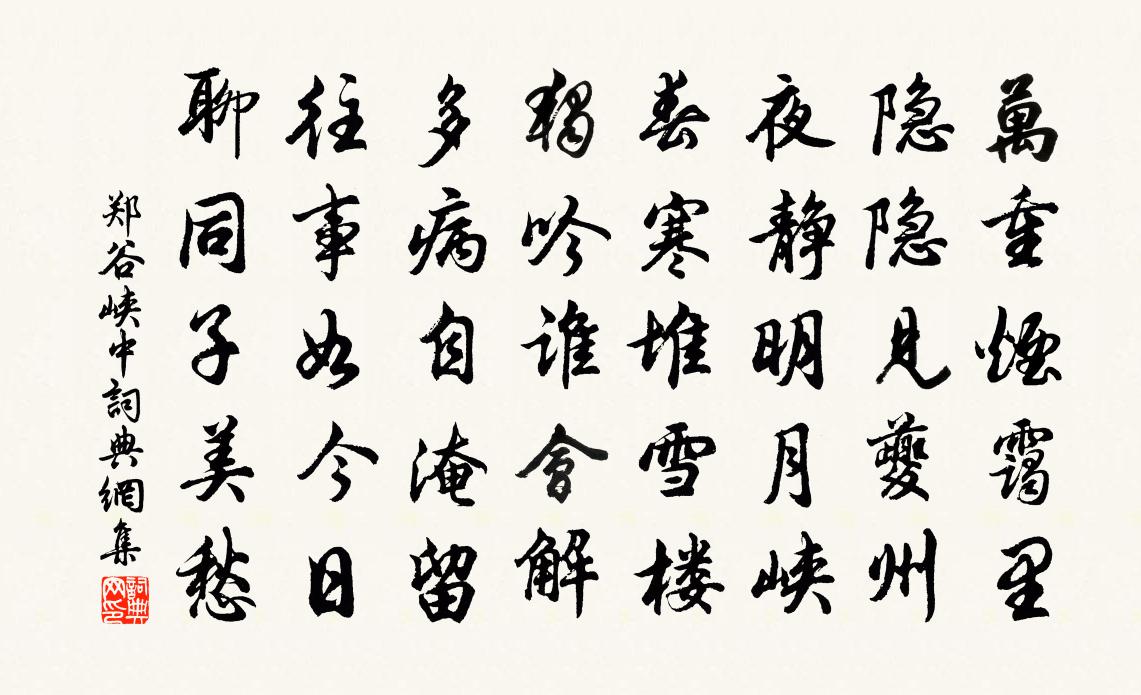 萬重煙靄里
隐隐見夔州
夜静明月峡
春寒堆雪楼
独吟谁會解
多病自淹留
往事如今日
聊同子美愁
郑谷峡中詞典網集
詞典网印